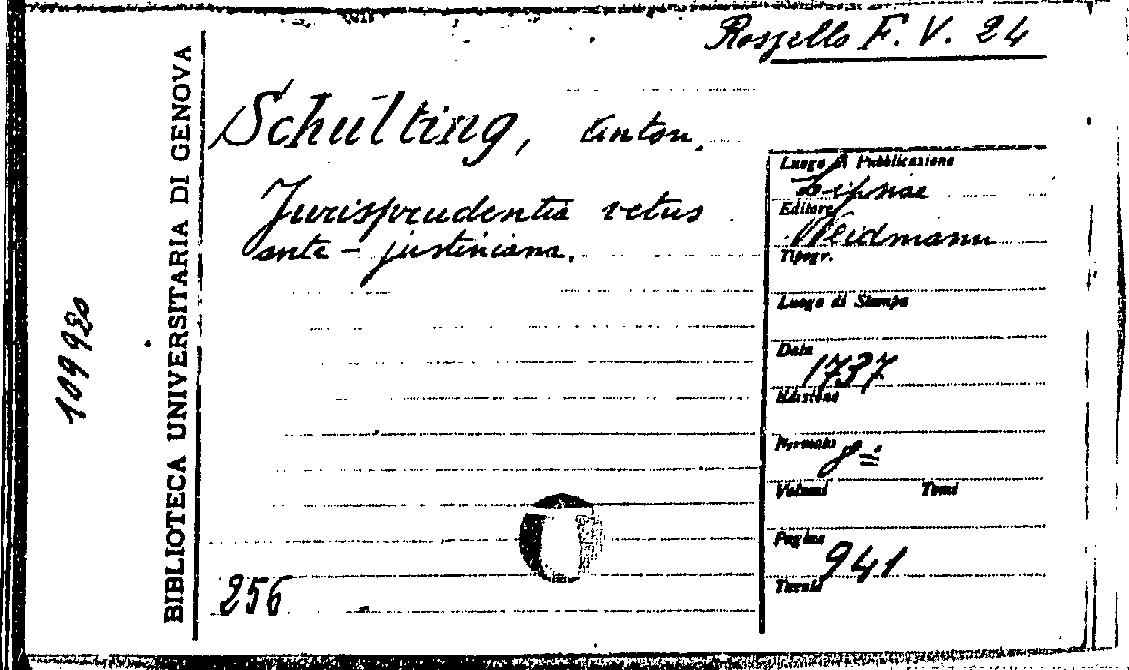 Rossello F. V. 24
BIBLIOTECA UNIVERSITARIA DI GENOVA
10992
Schulting, Anton.
Jurisprudentia vetus
ante-justiniana.
256
Luogo di Pubblicazione
Lipsiae
Editore
Weidmann
Tipogr.
Luogo di Stampa
Data
1737
Edizione
Formato
8º
Volumi Tomi
Pagine
941
Tavole